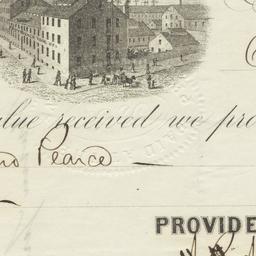 alue received we pro
no Pearce
PROVIDE